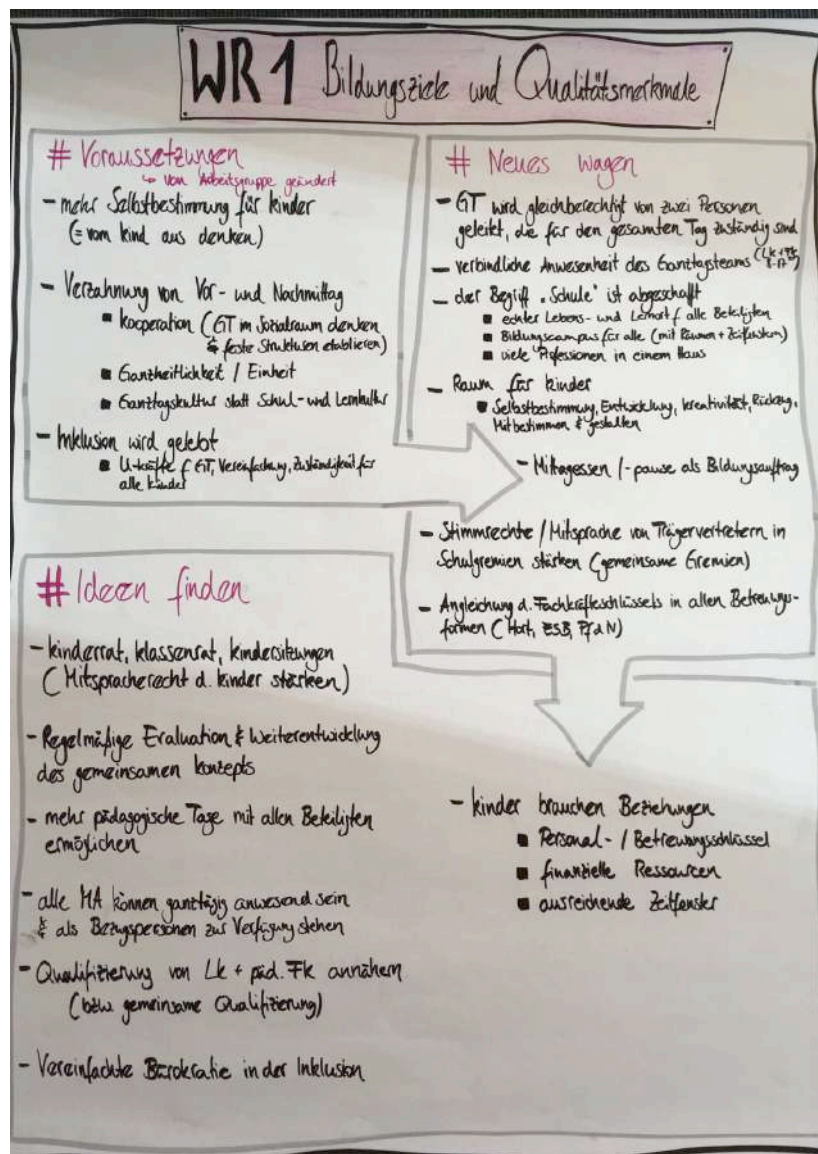 WR 1 Bildungsziele und Qualitätsmerkmale
# Voraussetzungen
↳ von Arbeitsgruppe geändert
- mehr Selbstbestimmung für Kinder
(= vom Kind aus denken)
- Verzahnung von Vor- und Nachmittag
▪ Kooperation (GT im Sozialraum denken
& feste Strukturen etablieren)
▪ Ganzheitlichkeit / Einheit
▪ Ganztagskultur statt Schul- und Lernkultur
- Inklusion wird gelebt
▪ U-Kräfte f. GT, Vereinfachung, Zuständigkeit für
alle Kinder
# Neues wagen
- GT wird gleichberechtigt von zwei Personen
geleitet, die für den gesamten Tag zuständig sind
- verbindliche Anwesenheit des Ganztagsteams (Lk + Fk 8-17)
- der Begriff "Schule" ist abgeschafft
▪ echter Lebens- und Lernort f. alle Beteiligten
▪ Bildungscampus für alle (mit Räumen + Zeitfenstern)
▪ viele Professionen in einem Haus
- Raum für Kinder
▪ Selbstbestimmung, Entwicklung, Kreativität, Rückzug,
Mitbestimmen & gestalten
- Mittagessen / -pause als Bildungsauftrag
- Stimmrechte / Mitsprache von Trägervertretern in
Schulgremien stärken (gemeinsame Gremien)
- Angleichung d. Fachkräfteschlüssels in allen Betreuungs-
formen (Hort, ESB, PfdN)
# Ideen finden
- Kinderrat, Klassenrat, Kindersitzungen
(Mitspracherecht d. Kinder stärken)
- Regelmäßige Evaluation & Weiterentwicklung
des gemeinsamen Konzepts
- mehr pädagogische Tage mit allen Beteiligten
ermöglichen
- alle MA können ganztägig anwesend sein
& als Bezugspersonen zur Verfügung stehen
- Qualifizierung von Lk + päd. Fk annähern
(bzw. gemeinsame Qualifizierung)
- Vereinfachte Bürokratie in der Inklusion
- Kinder brauchen Beziehungen
▪ Personal- / Betreuungsschlüssel
▪ finanzielle Ressourcen
▪ ausreichende Zeitfenster